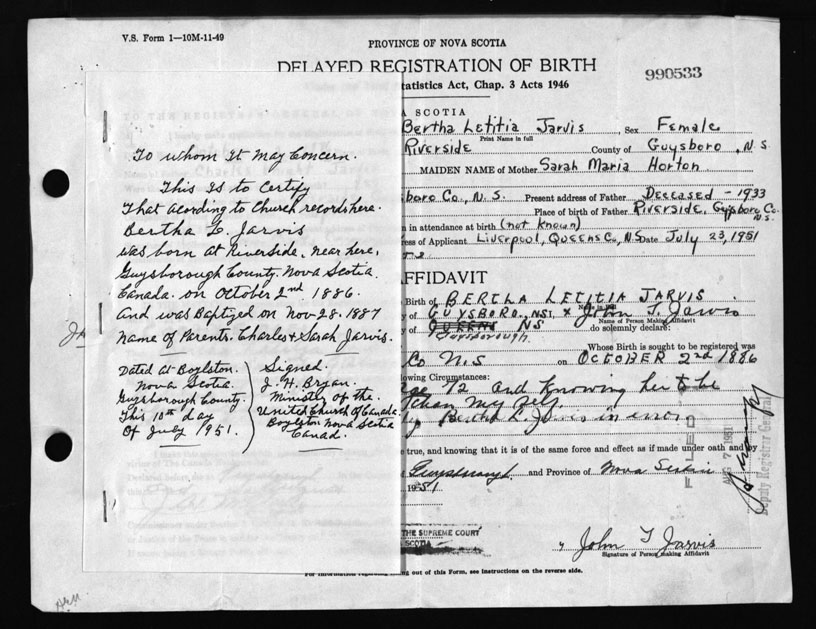 V.S. Form 1—10M-11-49
PROVINCE OF NOVA SCOTIA
DELAYED REGISTRATION OF BIRTH
tatistics Act, Chap. 3 Acts 1946
990533
A SCOTIA
Bertha Letitia Jarvis Sex Female
Print Name in full
Riverside County of Guysboro, N.S
MAIDEN NAME of Mother Sarah Maria Horton
boro Co., N.S. Present address of Father Deceased - 1933
Place of birth of Father Riverside, Guysboro Co. N.S.
n in attendance at birth (not known)
ress of Applicant Liverpool, Queens Co, N.S Date July 23, 1951
AFFIDAVIT
Birth of BERTHA LETITIA JARVIS
y of GUYSBORO, NS I, John T. Jarvis
Name of Person Making Affidavit
y of QUEENS NS do solemnly declare:
Guysborough
Whose Birth is sought to be registered was
Co N.S on OCTOBER 2nd 1886
llowing Circumstances:
age 72 and Knowing her to be
than my self.
Bertha L. Jones in error
e true, and knowing that it is of the same force and effect as if made under oath and by
Guysborough and Province of Nova Scotia
1951
FILED
AUG 7 1951
Deputy Registrar General
THE SUPREME COURT
SCOTIA
John T Jarvis
Signature of Person making Affidavit
For information regarding ing out of this Form, see instructions on the reverse side.
To whom It May Concern.
This Is to Certify
That acording to Church records here.
Bertha L. Jarvis
was born at Riverside, near here,
Guysborough County. Nova Scotia.
Canada. on October 2nd 1886.
And was Baptized on Nov-28. 1887
Name of Parents. Charles & Sarah Jarvis.
Dated at Boylston.
Nova Scotia.
Guysborough County.
This 10th day
Of July 1951.
Signed.
J. H. Bryan.
Ministry of the.
United Church of Canada.
Boylston Nova Scotia
Canad.